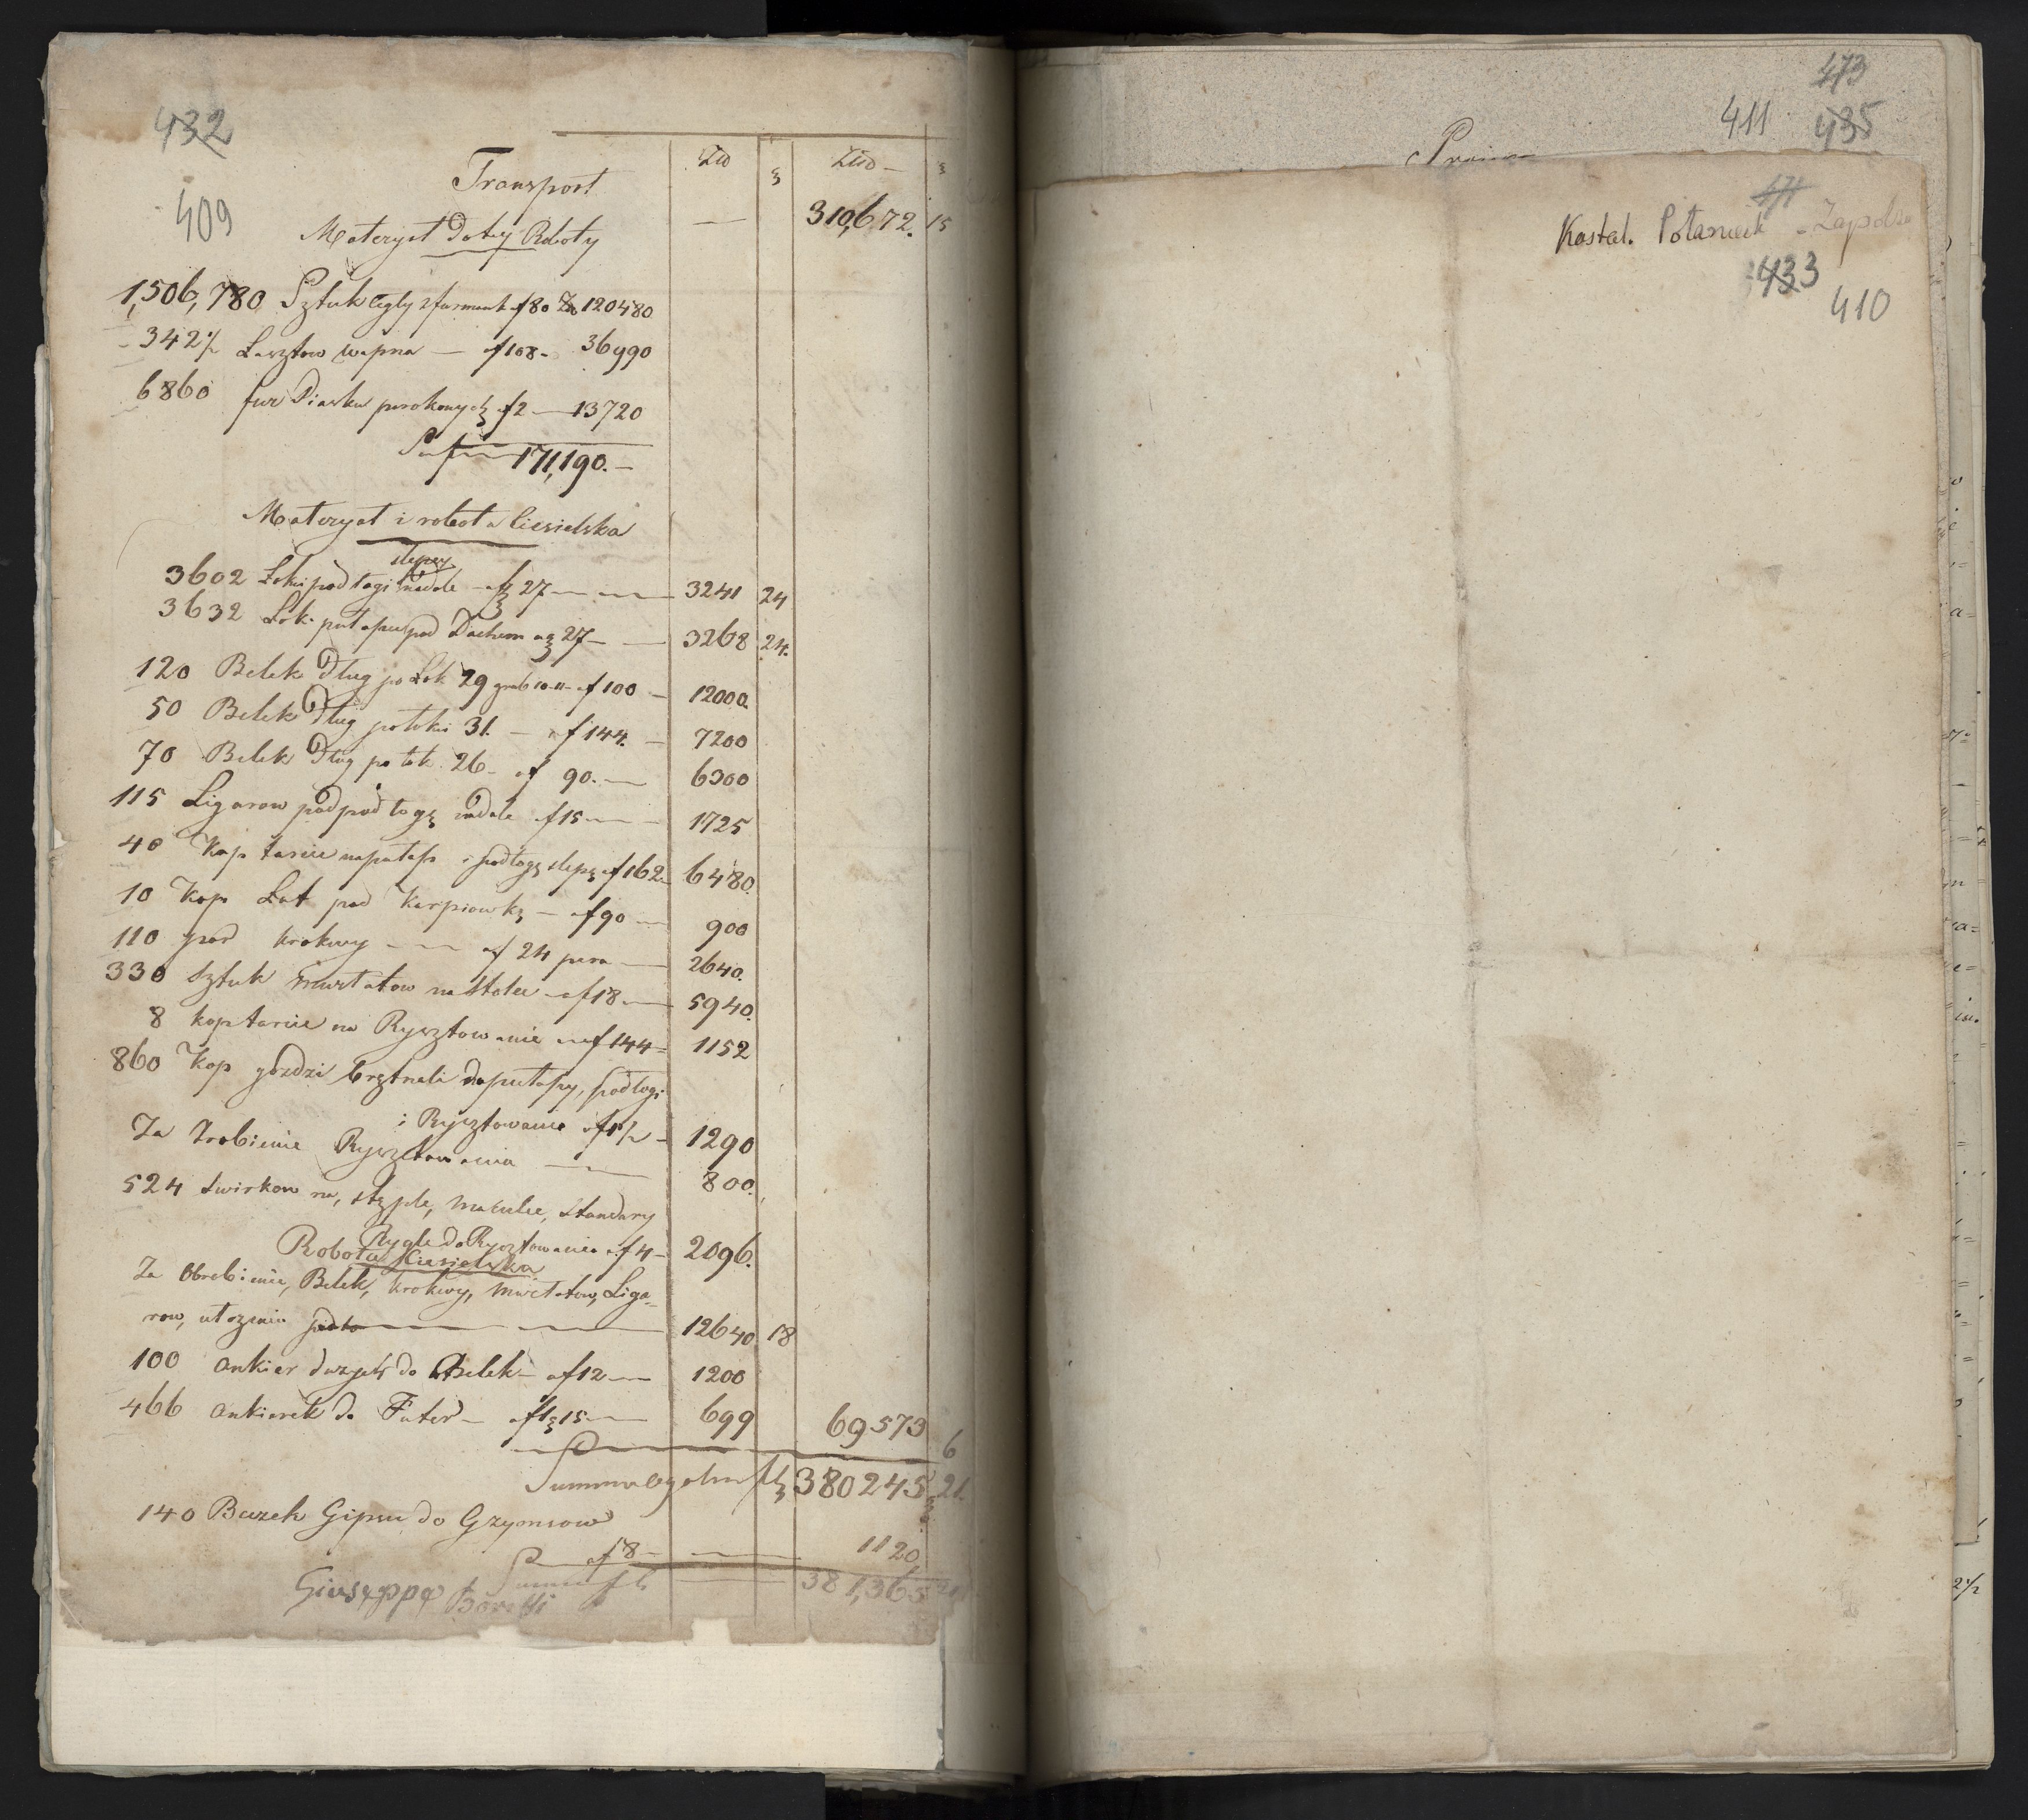 432
409
Złł gr Złł – gr
Transport — 310,672. 15
Materyał do tey Roboty
1,506,780 Sztuk Cegły z furmank af 80 Złł 120480
342½ Lasztow wapna — af 108 – 36990
6860 fur Piasku parokonych af 2 — 13720
Sufma 171,190. –
Materyał i robota Ciesielska
slepey
3602 Łokci podłogi na dole – a gr 27 — 3241 24
3632 Łok. pułapu pod Dachem a gr 27 – 3268 24.
120 Belek Dług po Łok 29 grub 10–11 – af 100 – 12000.
50 Belek Dług po łokci 31. – af 144. – 7200
70 Belek Dług po łok. 26 – af 90. — 6300
115 Ligarow pod podłogę na dole af 15 — 1725
40 Kop tarcic na pułap i podłogę slepę af 162 – 6480.
10 Kop Łat pod Karpiowkę – af 90 — 900
110 par krokwy — af 24 para — 2640.
330 Sztuk murłatow na stolce – af 18 — 5940.
8 kop tarcic na Rysztowanie – af 144 = 1152
860 Kop gozdzi bretnali do pułapy, podłogi
i Rysztowanie af 1½ – 1290
Za Zrobienie Rysztowania — 800.
524 Swirkow na, stęple, macule, standary
Rygle do Rysztowania af 4 – 2096.
Robota Ciesielska
Za Obrobienie, Belek, krokwy, murłatow, Liga-
row, ułozenia podło — 12640 18
100 ankier duzych do Belek – af 12 — 1200
466 ankierek do Futer – af 1 gr 15 — 699 69573 6
Summa ogolna fl 380245 21.
140 Beczek Gipsu do Gzymsow
af 8 – — 1120
Summa fl — 381,365 21
Giuseppe Boretti
473
411 435
471
Kasztel. Połaniecki – Zapolska
433
410